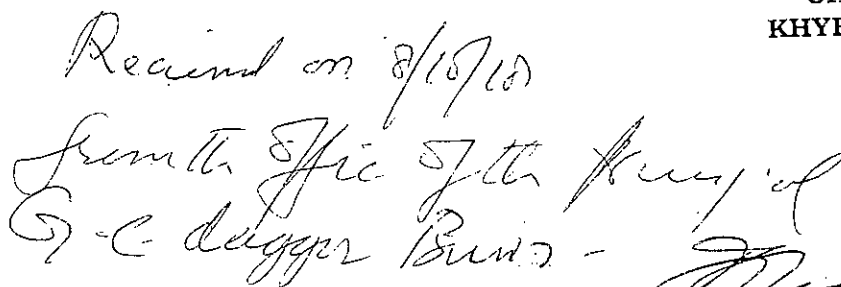 KHYE
Received on 8/10/18
from the office of the Principal
G.C. daggar Buner -